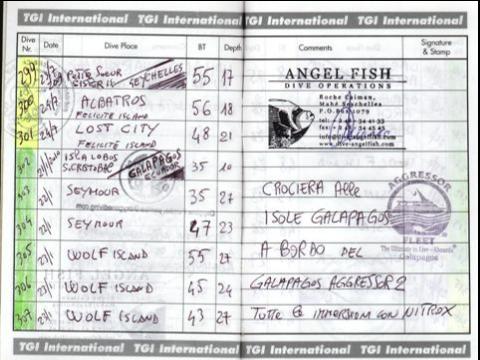 TGI International TGI International TGI International TGI International
Dive Nr. Date Dive Place BT Depth Comments Signature & Stamp
299 PETITE SOEUR SISTER IS. SEYCHELLES 55 17
300 24/7 ALBATROS FELICITE ISLAND 56 18
301 24/7 LOST CITY FELICITE ISLAND 48 21
ANGEL FISH
DIVE OPERATIONS
Roche Caiman,
Mahé Seychelles
P.O.Box 1079
www.dive-angelfish.com
302 ISLA LOBOS S.CRISTOBAL GALAPAGOS ECUADOR 35 10
303 SEYMOUR 35 27 CROCIERA ALLE
304 SEYMOUR 47 23 ISOLE GALAPAGOS
305 WOLF ISLAND 55 27 A BORDO DEL
306 WOLF ISLAND 45 24 GALAPAGOS AGGRESSOR 2
307 WOLF ISLAND 43 27 TUTTE LE IMMERSIONI CON NITROX
AGGRESSOR
FLEET
The Ultimate in Live-Aboards
Galapagos
TGI International TGI International TGI International TGI International